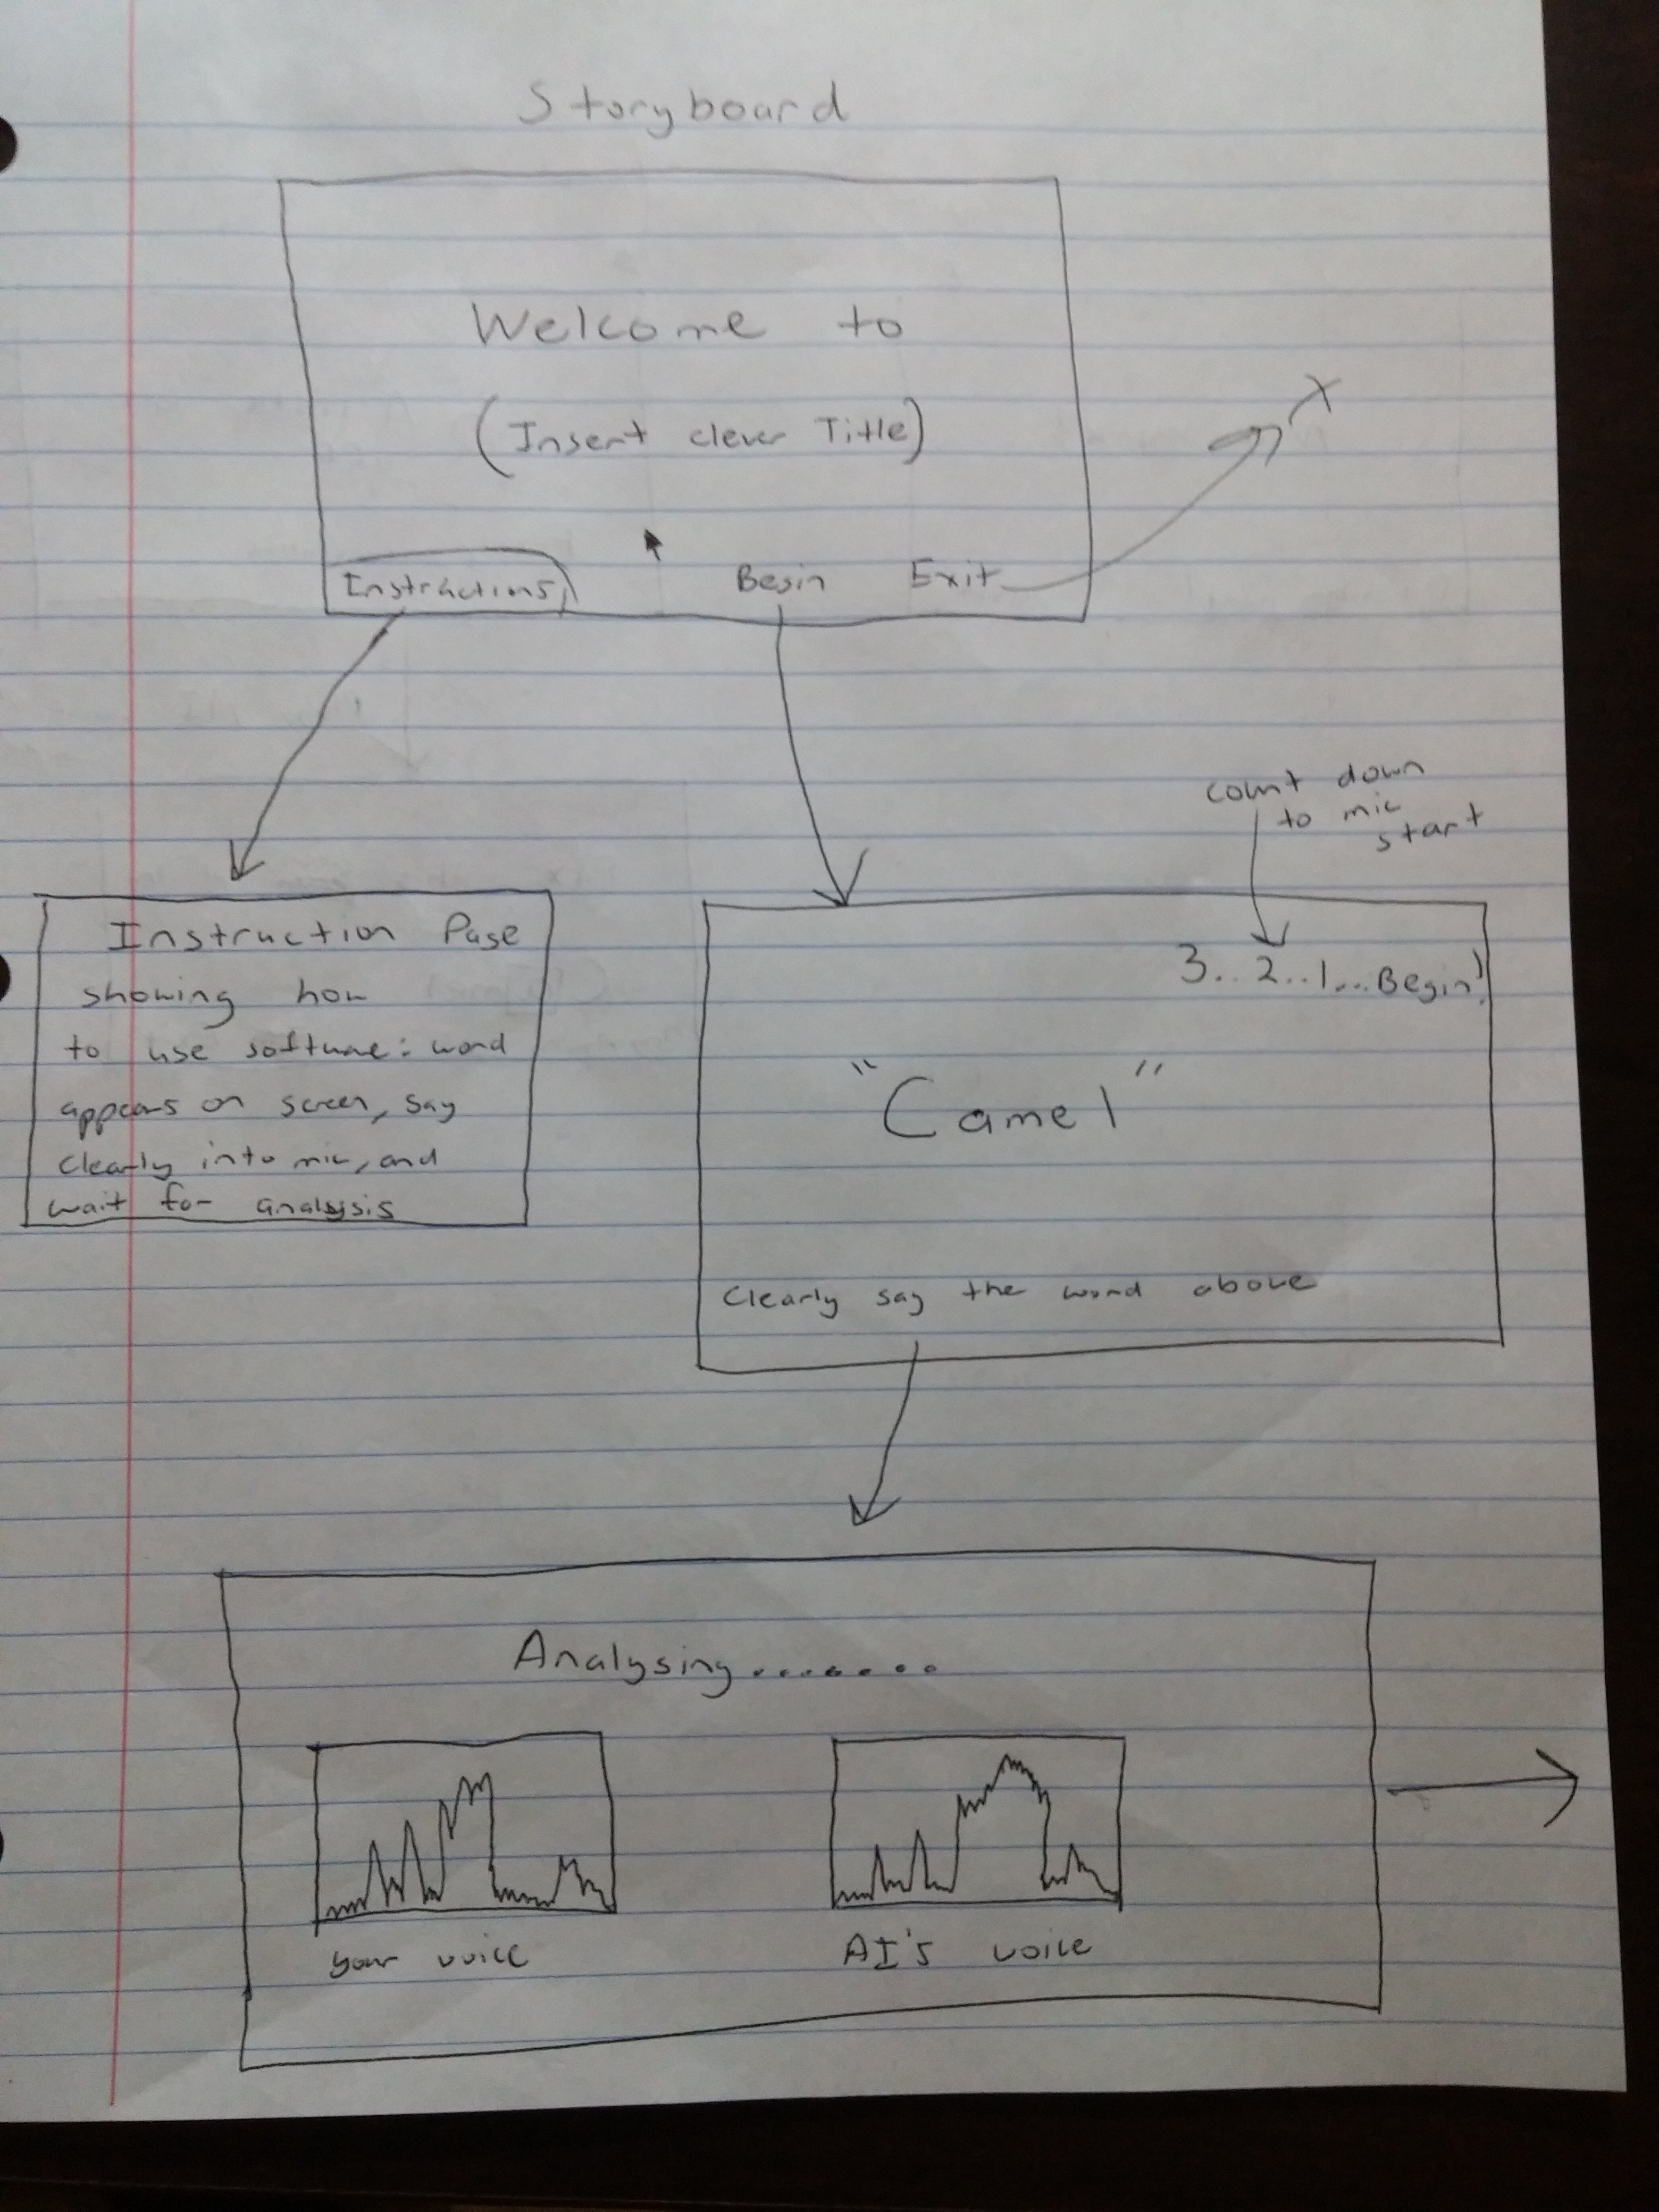 Storyboard
Welcome to
(Insert clever Title)
Instructions
Begin
Exit
X
count down
to mic
start
Instruction Page
showing how
to use software: word
appears on screen, say
clearly into mic, and
wait for analysis
3..2..1...Begin!
"Camel"
Clearly say the word above
Analysing........
your voice
AI's voice